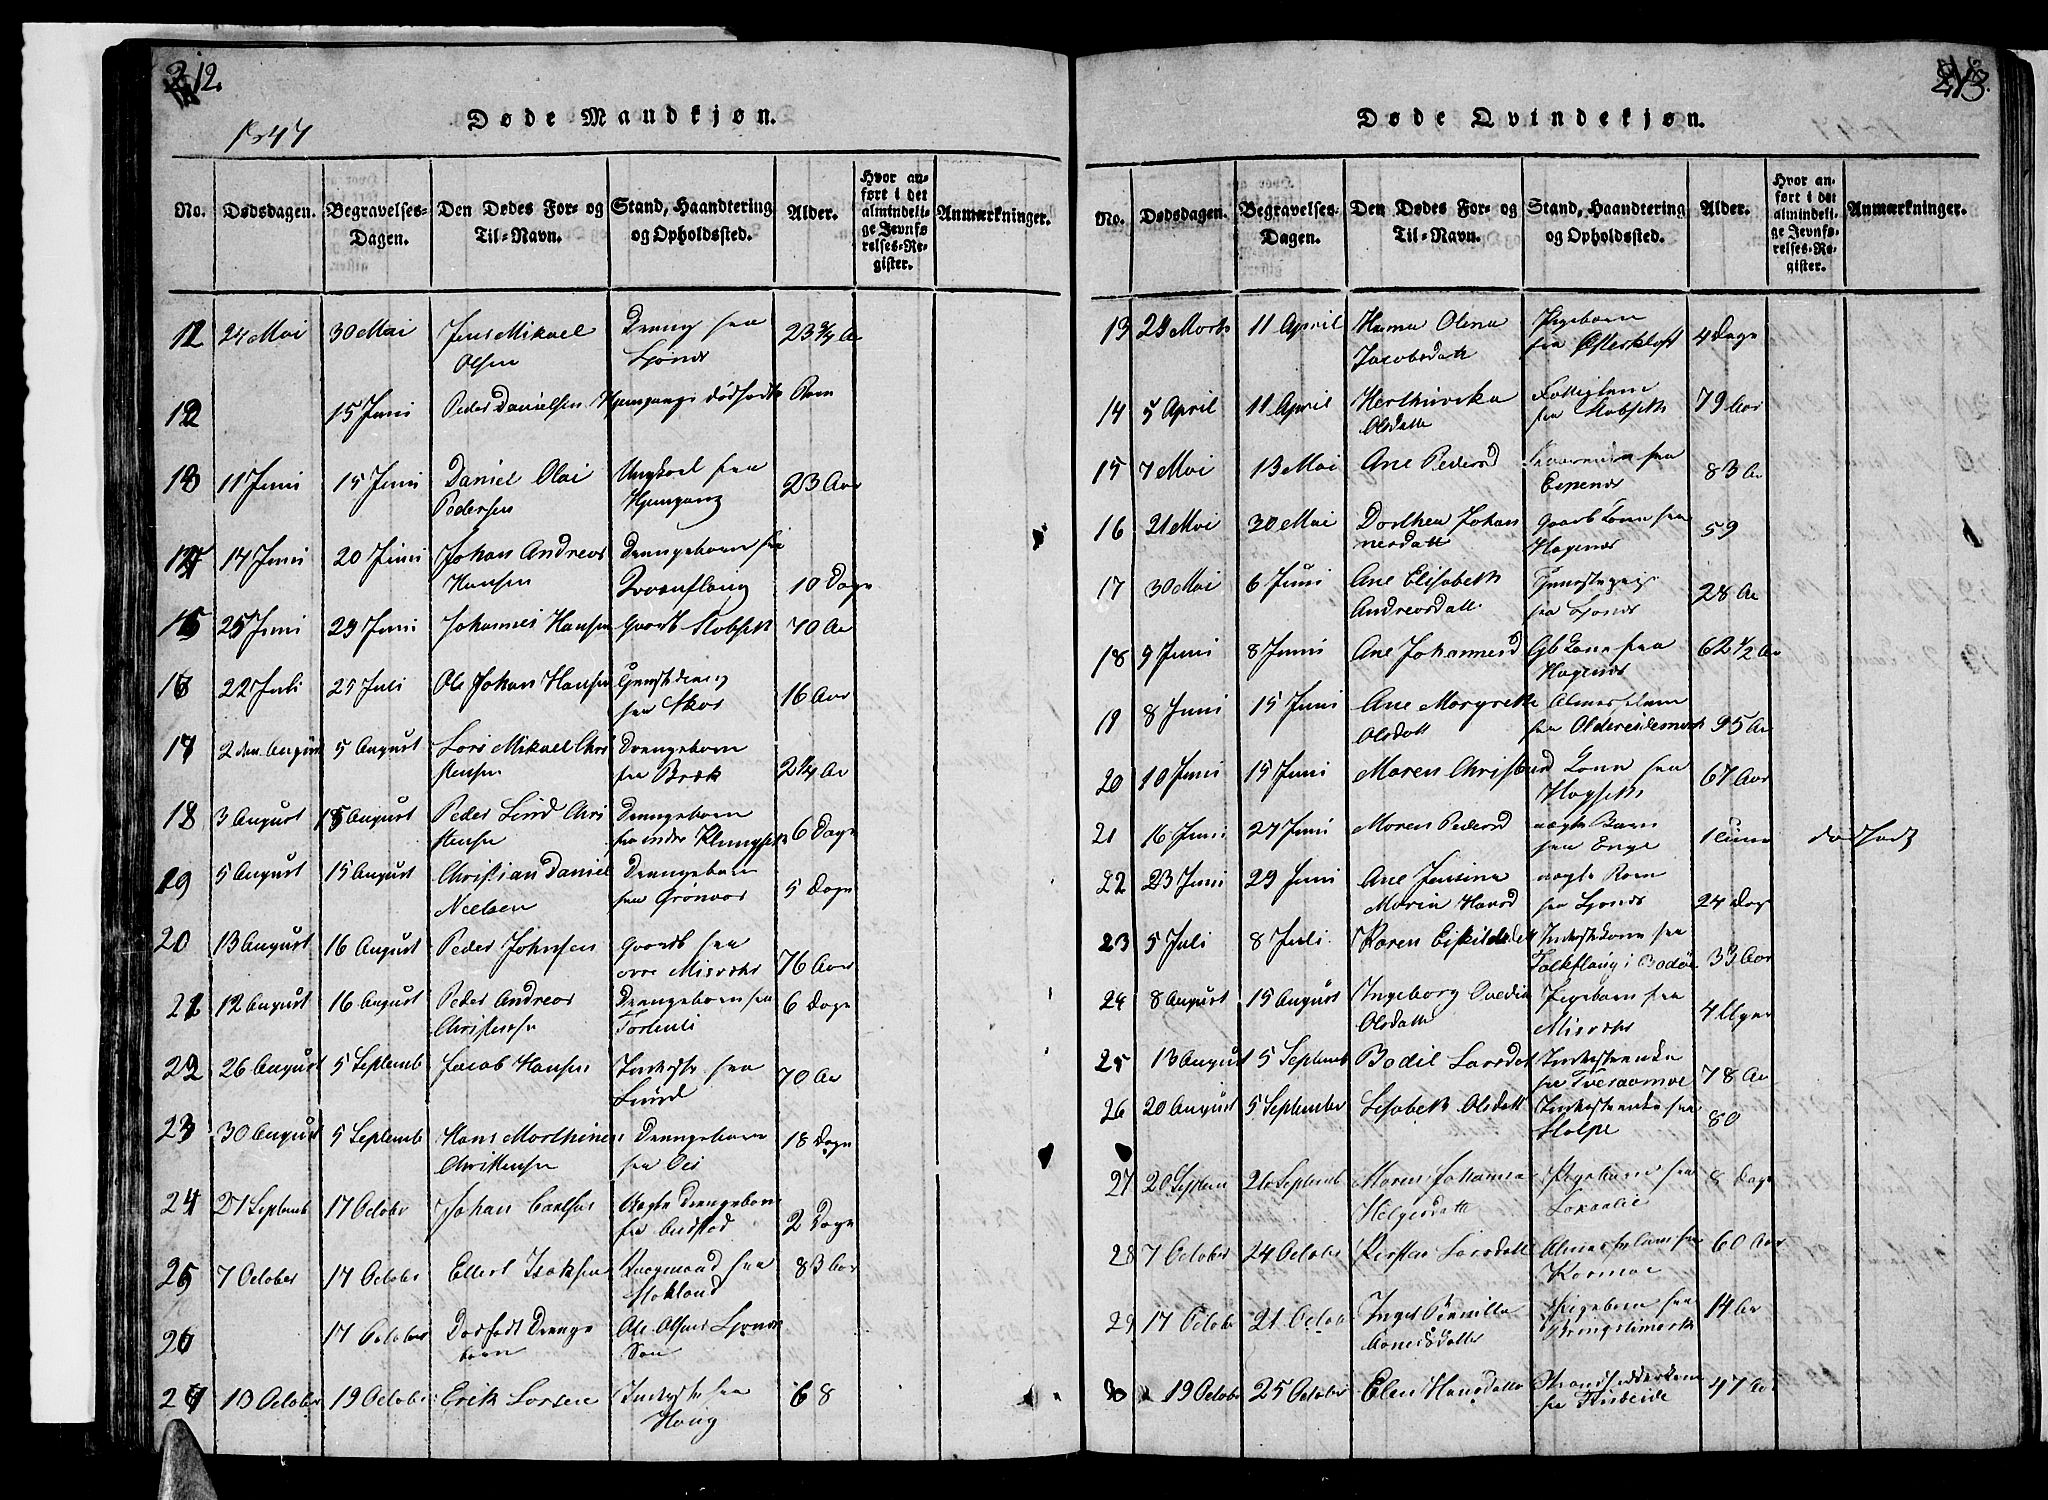 212.
Døde Mandkjøn.
1847
No.
Dødsdagen.
Begravelses-
Dagen.
Den Dødes For- og
Til-Navn.
Stand, Haandtering
og Opholdssted.
Alder.
Hvor an-
ført i det
almindeli-
ge Jevnfø-
relses-Re-
gister.
Anmærkninger.
24 Mai 30 Mai Jens Mikael
Olsen
23 3/4 Aar
12 15 Juni Peder Danielsen Hjemgangs dødfødte Barn
11 Juni 15 Juni Daniel Olai
Pedersen
Ungkarl fra
Hjemgang
23 Aar
14 Juni 20 Juni Johan Andreas
Hansen
Drengebarn fra
10 Dage
15 25 Juni 29 Juni Johannes Hansen Gaardb Stobseth 70 Aar
16 22 Juli 25 Juli Ole Johan Hansen
16 Aar
17 2den August 5 August Lars Mikael Chri
stensen
Drengebarn
fra Bræk
2 1/4 Aar
18 3 August 15 August Peder Lind Chri
stensen
Drengebarn
fra indre Klungset
6 Dage
19 5 August 15 August Christian Daniel
Nielsen
Drengebarn
fra Grønnaas
5 Dage
20 13 August 16 August Peder Johnsen
Gaardb fra
øvre Misvær
76 Aar
21 12 August 16 August Peder Andreas
Christensen
Drengebarn fra
6 Dage
22 26 August 5 Septemb Jacob Hansen
Inderste fra
Lund
70 Aar
23 30 August 5 Septemb Hans Morthinus
Christensen
Drengebarn
fra Oes
18 Dage
24 21 Septemb 17 October Johan Carlsen
Uægte Drengebarn
2 Dage
25 7 October 17 October Ellert Isaksen
fra
Stokland
83 Aar
26 17 October Dødfødt Drenge
barn
Ole Olsens Ljønes
Søn
27 13 October 19 October Erik Larsen
Inderste fra
Haug
68
213.
Døde Qvindekjøn.
No.
Dødsdagen.
Begravelses-
Dagen.
Den Dødes For- og
Til-Navn.
Stand, Haandtering
og Opholdssted.
Alder.
Hvor an-
ført i det
almindeli-
ge Jevnfø-
relses-Re-
gister.
Anmærkninger.
13 Marts 11 April Hanna Olena
Jacobsdatt
Pigebarn
fra Østerkløft
4 Dage
14 5 April 11 April
Olsdatte
fra Stobseth
79 Aar
15 7 Mai 13 Mai Ane Pedersd
fra
Espenæs
83 Aar
16 21 Mai 30 Mai Dorthea Johan
nesdatt
Gaardb Kone fra
Hagenæs
59
17 30 Mai 6 Juni Ane Elisabeth
Andreasdatt
Tjenestepige
fra Ljønes
28 Aar
18 8 Juni Ane Johannesd
Gb Kone fra
Hagenæs
62 1/2 Aar
19 8 Juni 15 Juni Ane Margreth
Olsdatt
Almisselem
95 Aar
20 10 Juni 15 Juni Maren Christensd
Kone fra
Hagseth
67 Aar
21 16 Juni 27 Juni Maren Pedersd
uægte Barn
fra Enge
1 Time dødfødt
22 23 Juni 29 Juni Ane Jensine
Maria Hansd
uægte Barn
fra Ljønes
24 Dage
23 5 Juli 8 Juli Karen Eskildsdatt
Inderstekone fra
i Bodø
33 Aar
24 8 August 15 August Ingeborg Ovedia
Olsdatte
Pigebarn fra
Misvær
4 Uger
25 13 August 5 Septemb Bodil Larsdatt
Inderstenke
fra Tveraamoe
78 Aar
26 20 August 5 September Lisabeth Olsdatt
Inderstenke fra
Stolpe
80
27 20 Septem 26 Septemb Maren Johanna
Helgesdatt
Pigebarn fra
8 Dage
28 7 October 24 Octobe Kirsten Larsdatt
Almisselem fra
Kormoe
60 Aar
29 17 October 21 Octob Inger Pernille
Pigebarn fra
Bringslimark
14 Aar
30 19 October 25 October Elen Hansdatte
47 Aar